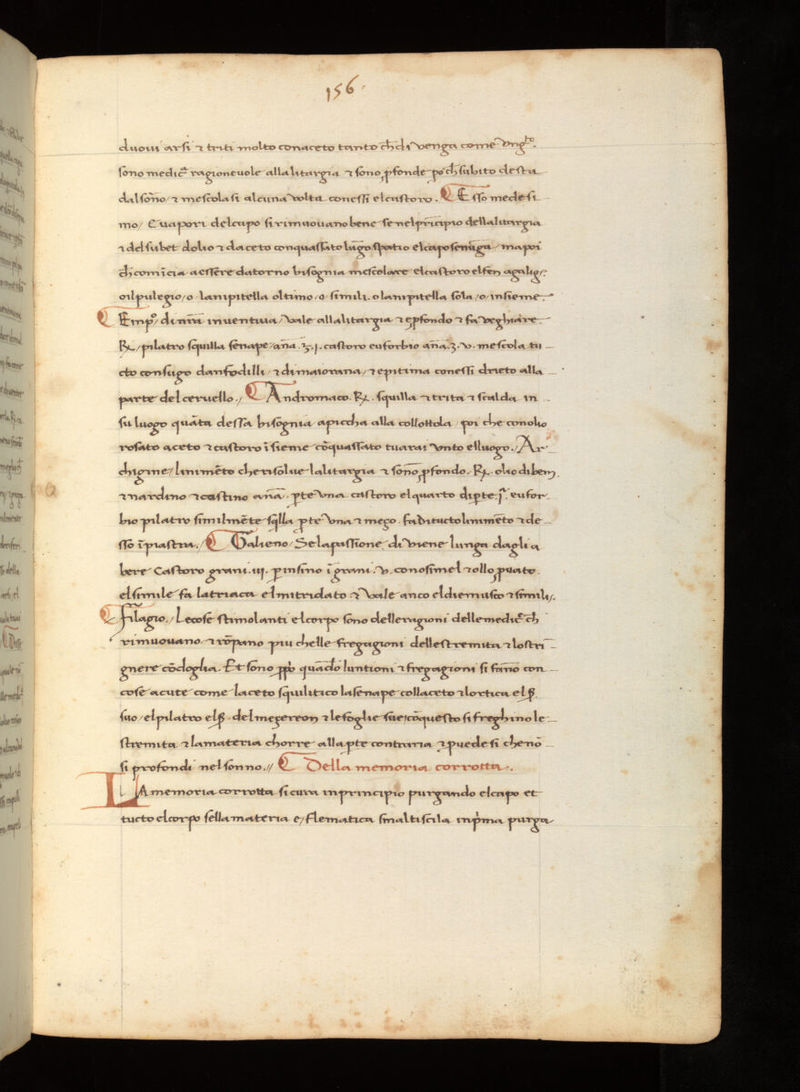 156.
duoui arsi ⁊ triti molto conaceto tanto ch̄ diuenga come ungͭᵒ.
sono medic̄ ragioneuole allalitargia ⁊ sono ꝓfonde poch̄ subito desta
dalsōno / ⁊ mescolasi alcuna uolta conessi elcastoro. Esso medesi
mo / Euapori delcapo sirimuouano bene senelprīcipio dellalitargia
⁊ delsubet dolio ⁊ daceto conquassato spatio / mapoi
ch̄ comīcia aessere datorno bisōgnia mescolare elcastoro
oilpulegio / o lanipitella oltimo / o simili. o lanipitella sola / o insieme.
di nr̄a inuentiua / uale allalitargia ⁊ ꝓfondo ⁊ fa ueghiare.
℞ / pilatro squilla senape / an̄a .ʒ.j. castoro euforbio an̄a .ʒ.v. mescola tu
cto consugo danfodilli / ⁊ dimaiorana / ⁊ epitima conessi drieto alla
parte delceruello. / Andromaco. ℞. squilla ⁊ trita ⁊ scalda in
suluogo quāta dessa bisōgnia apiccha alla collottola / poi che conolio
rosato aceto ⁊ castoro īsieme cōquassato tuarai unto elluogo. / Ar
chigine / linimēto cherisolue lalitargia ⁊ sonno ꝓfondo. ℞. olio diben.
⁊nardino ⁊castino an̄a. ꝑte una castoro elquarto diꝑte .j. eufor
bio pilatro similmēte sq̄lla ꝑte una ⁊ meço. faditucto linimēto ⁊ de
sso īpiastra. / Galieno / Selapassione diuiene lunga dagli a
bere Castoro grani .iij. ꝑ insino ī grani .v. conosimel ⁊ollo ꝓuato.
elsimile fa latriaca elmitridato ⁊ uale anco eldiemusco ⁊ simili /.
Filagio. / Lecose stimolanti elcorpo sono delleragioni dellemedic̄ ch̄
rimuouano ⁊ rōpano piu chelle fregagioni dellestremita ⁊ lostri
gnere cōdoglia. Et sono quādo luntioni ⁊ fregagioni si fāno con
cose acute come laceto squilitico lasenape collaceto ⁊lortica
suo / elpilatro delmeçereon ⁊ lefoglie sue / cōquesto sifreghino le
stremita ⁊ lamateria chorre allaꝑte contraria ⁊puedesi chenō
si profondi nelsonno. // Della memoria corrotta.
LA memoria corrotta sicura inprincipio purgando elcapo et
tucto elcorpo sellamateria e / flematica smaltiscila inpͥma purga